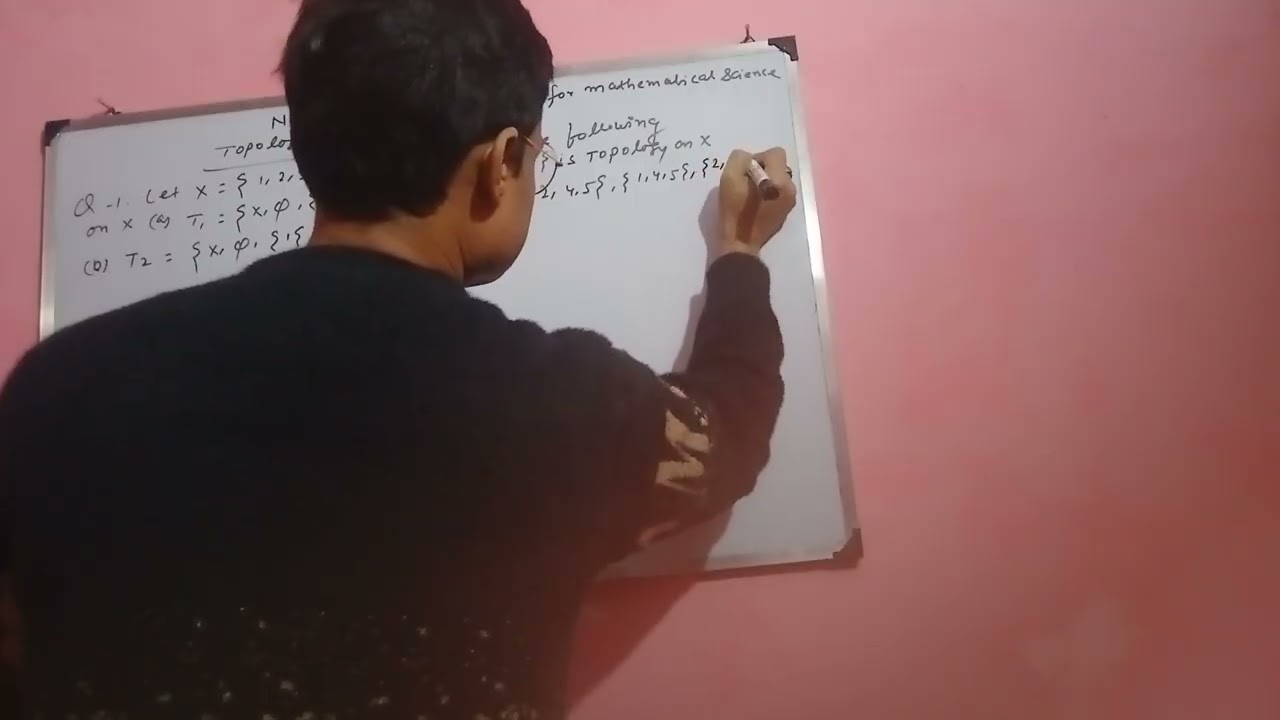 for mathematical Science
N
Topolo
following
Q-1. Let X = { 1, 2,
is Topology on X
on X (a) T₁ = { X, φ, {
2, 4, 5}, {1, 4, 5}, {2,
(b) T2 = { X, φ, {